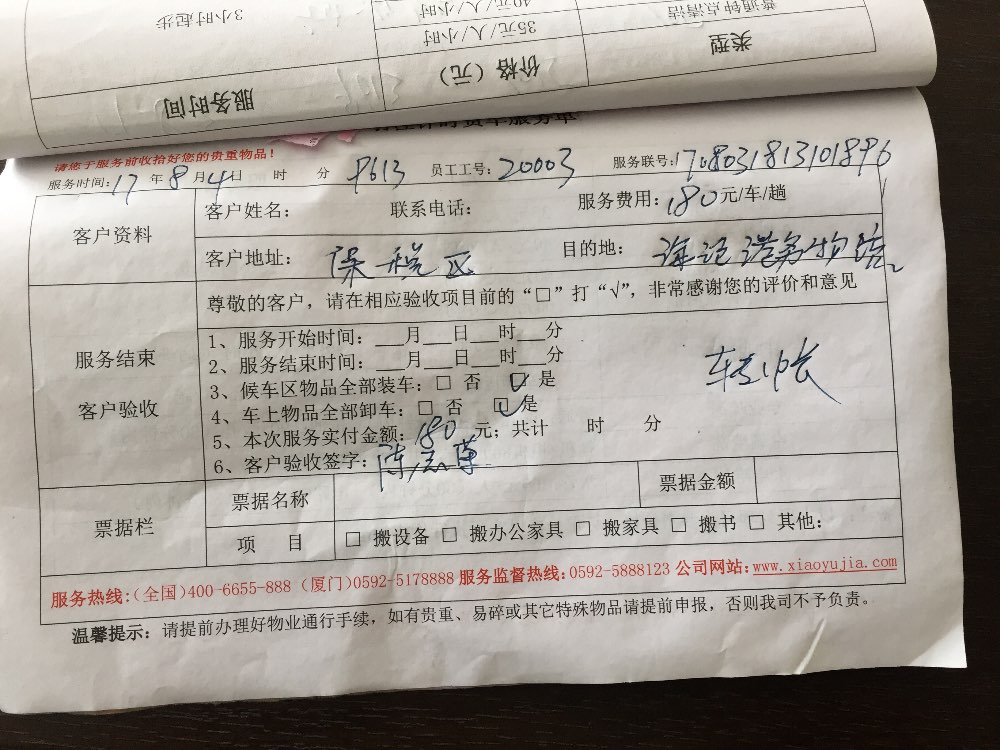 3小时起步
40元/人/小时
普通钟点清洁
35元/人/小时
服务时间
价格（元）
类型
请您于服务前收拾好您的贵重物品！
服务时间：17年8月4日 时 分 P613 员工工号：20003 服务联号：1708031813101896
客户资料
客户姓名： 联系电话： 服务费用：180元/车/趟
客户地址：保税区 目的地：
尊敬的客户，请在相应验收项目前的“□”打“√”，非常感谢您的评价和意见
服务结束
客户验收
1、服务开始时间：___月___日___时___分
2、服务结束时间：___月___日___时___分
3、候车区物品全部装车：□ 否 ☑ 是
4、车上物品全部卸车：□ 否 ☑ 是
5、本次服务实付金额：180元；共计 时 分
6、客户验收签字：
票据栏
票据名称 票据金额
项 目 □ 搬设备 □ 搬办公家具 □ 搬家具 □ 搬书 □ 其他：
服务热线：（全国）400-6655-888（厦门）0592-5178888 服务监督热线：0592-5888123 公司网站：www.xiaoyujia.com
温馨提示：请提前办理好物业通行手续，如有贵重、易碎或其它特殊物品请提前申报，否则我司不予负责。